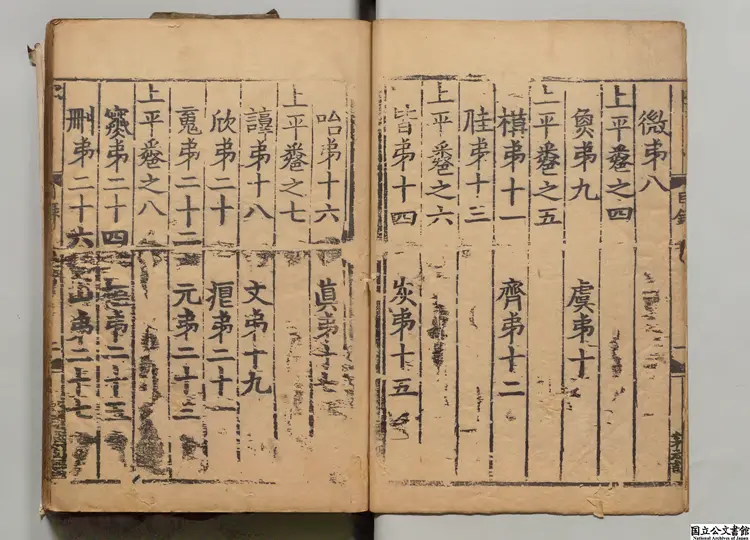 微弟八
上平卷之四
魚弟九 虞弟十
上平卷之五
模弟十一 齊弟十二
佳弟十三
上平卷之六
皆弟十四 灰弟十五
目錄
咍弟十六 眞弟十七
上平卷之七
諄弟十八 文弟十九
欣弟二十 痕弟二十一
魂弟二十二 元弟二十三
上平卷之八
寒弟二十四 弟二十五
刪弟二十六 山弟二十七
国立公文書館
National Archives of Japan